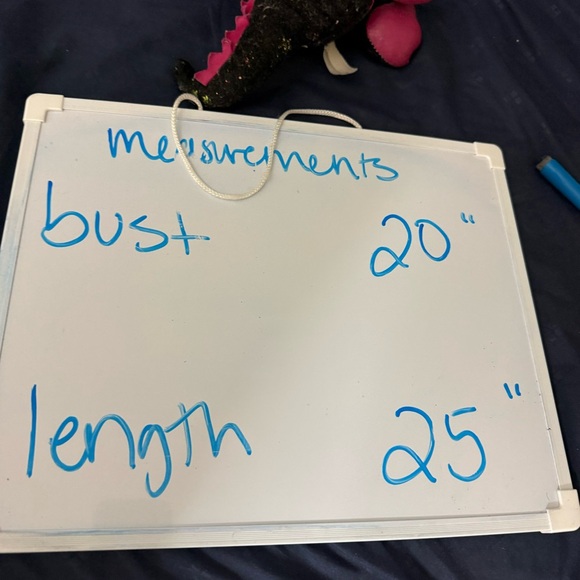 measurements
bust 20"
length 25"